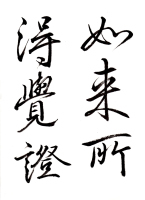 如来所
得覺證